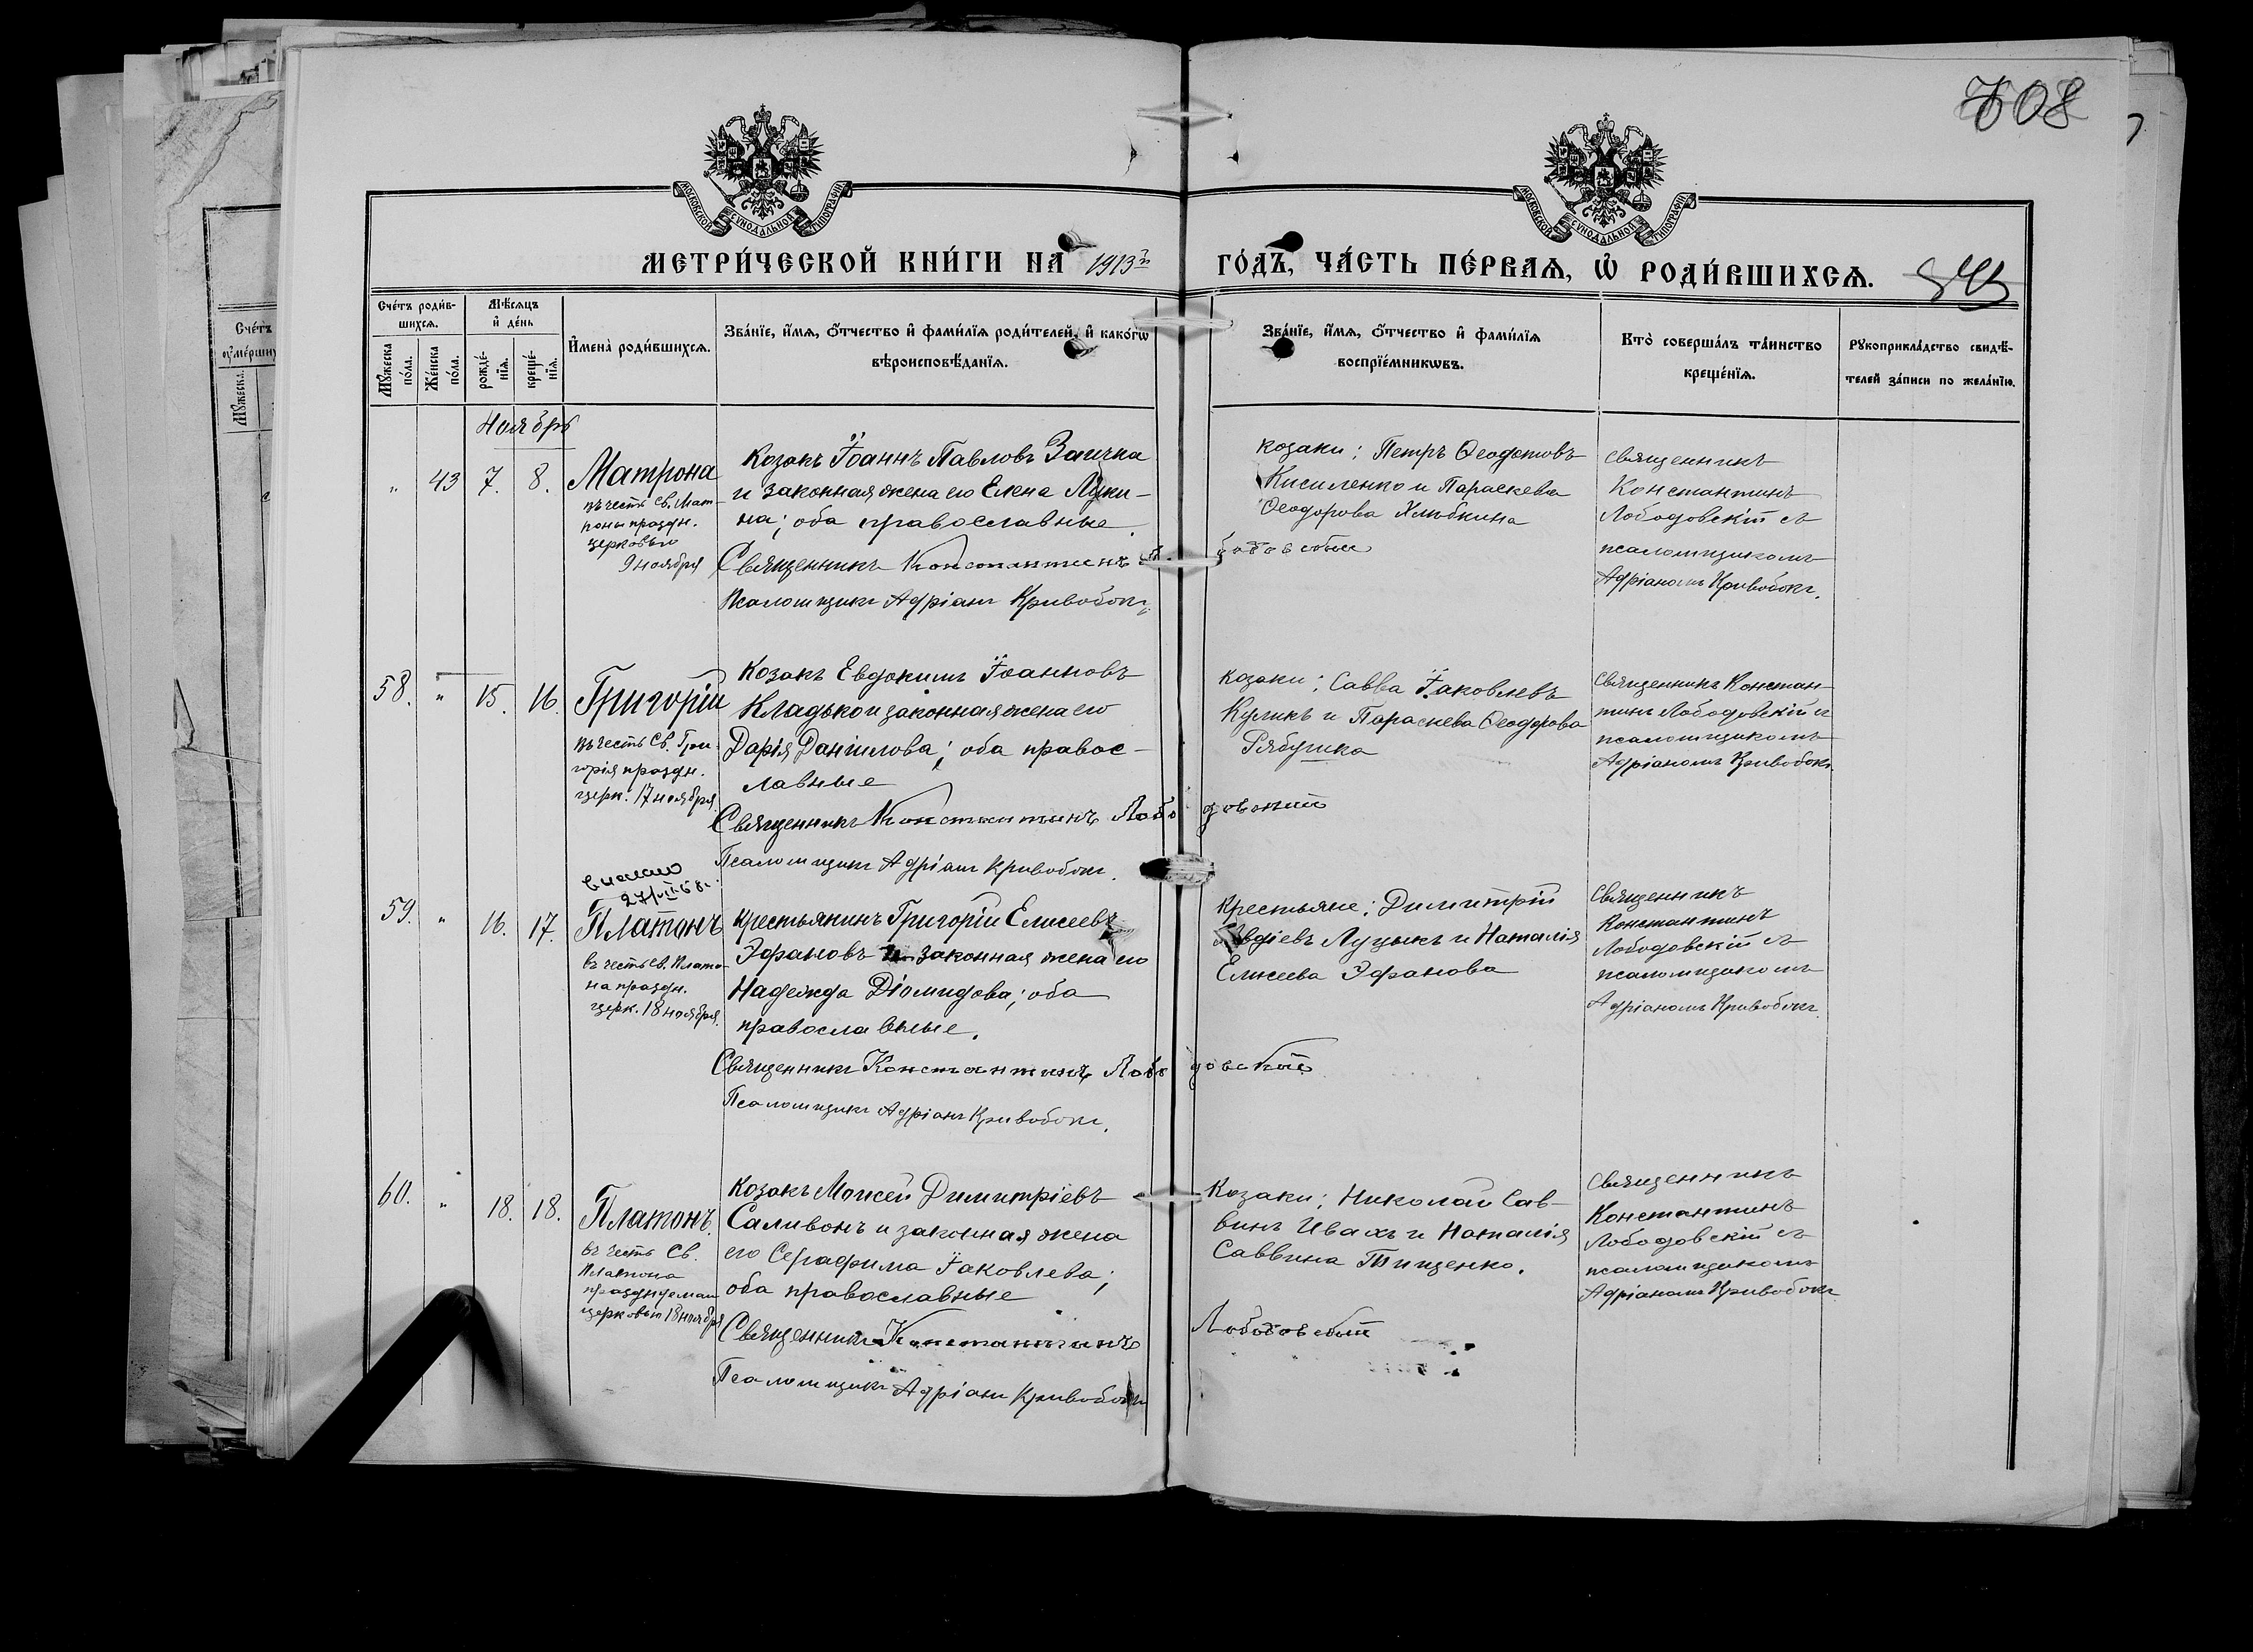 708
МОСКОВСКОЙ СѴНОДАЛЬНОЙ ТИПОГРАФІИ
МОСКОВСКОЙ СѴНОДАЛЬНОЙ ТИПОГРАФІИ
МЕТРИ́ЧЕСКОЙ КНИ́ГИ НА 1913й ГО́ДЪ, ЧА́СТЬ ПЕ́РВАѦ, Ѿ РОДИ́ВШИХСѦ.
Сче́тъ роди́в-
шихсѧ.
Мꙋ́жеска по́ла.
Же́нска по́ла.
Мѣ́сѧцъ и҆ де́нь
рожде́-нїѧ.
креще́-нїѧ.
И҆мена̀ роди́вшихсѧ.
Зва́нїе, и҆́мѧ, ѻ҆́тчество и҆ фами́лїѧ роди́телей, и҆ како́гѡ
вѣроисповѣ́данїѧ.
Зва́нїе, и҆́мѧ, ѻ҆́тчество и҆ фами́лїѧ
воспрїе́мникѡвъ.
Кто̀ соверша́лъ та́инство
креще́нїѧ.
Рꙋкоприкла́дство свидѣ́-
телей за́писи по жела́нїю.
Ноябрь
" 43 7. 8.
Матрона
въ честь Св. Мат-
роны праздн.
церковью
9 ноября
Козакъ Іоаннъ Павловъ Заичка
и законная жена его Елена Луки-
на; оба православные
Священникъ Константинъ Лободовскій
Псаломщикъ Адріанъ Кривобокъ
козаки: Петръ Ѳеодотовъ
Кисиленко и Параскева
Ѳеодорова Хлюбкина
священникъ
Константинъ
Лободовскій съ
псаломщикомъ
Адріаномъ Кривобокъ.
58. " 15. 16.
Григорій
въ честь Св. Гри-
горія праздн.
церк. 17 ноября.
Козакъ Евдокимъ Іоанновъ
Кладько и законная жена его
Дарія Даніилова; оба правос-
лавные
Священникъ Константинъ Лободовскій
Псаломщикъ Адріанъ Кривобокъ.
козаки: Савва Іаковлевъ
Куликъ и Параскева Ѳеодорова
Рябушка
священникъ Констан-
тинъ Лободовскій и
псаломщикомъ
Адріаномъ Кривобокъ.
59. " 16. 17.
Платонъ
въ честь Св. Плато-
на праздн.
церк. 18 ноября.
крестьянинъ Григорій Елисеевъ
Эфановъ и законная жена его
Надежда Діомидова; оба
православные.
Священникъ Константинъ Лободовскій
Псаломщикъ Адріанъ Кривобокъ.
крестьяне: Димитрій
Авдіевъ Луцыкъ и Наталія
Елисеева Эфанова
священникъ
Константинъ
Лободовскій съ
псаломщикомъ
Адріаномъ Кривобокъ.
60. " 18. 18.
Платонъ.
въ честь Св.
Платона
церковью 18 ноября
Козакъ Моисей Димитріевъ
Саливонъ и законная жена
его Серафима Іаковлева;
оба православные
Священникъ Константинъ Лободовскій
Псаломщикъ Адріанъ Кривобокъ
Козаки: Николай Сав-
винъ Ивахъ и Наталія
Саввина Тищенко.
Священникъ
Константинъ
Лободовскій съ
псаломщикомъ
Адріаномъ Кривобокъ